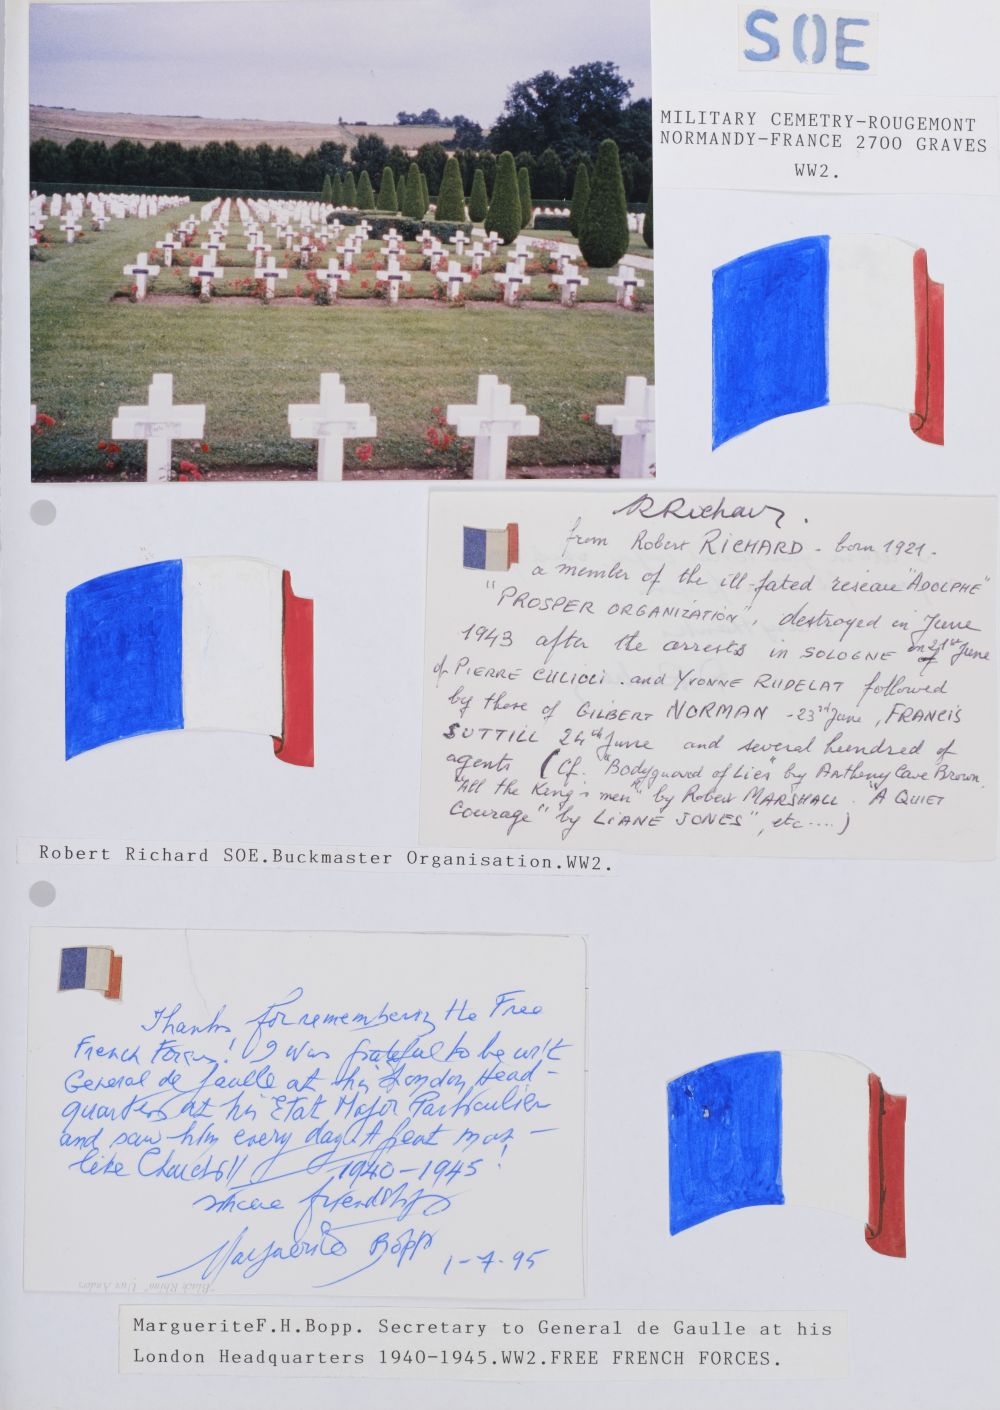 SOE
MILITARY CEMETRY-ROUGEMONT
NORMANDY-FRANCE 2700 GRAVES
WW2.
RRichard.
from Robert RICHARD - born 1921 -
a member of the ill-fated reseau "ADOLPHE"
"PROSPER ORGANIZATION", destroyed in June
1943 after the arrests in SOLOGNE on 21st June
of PIERRE CULIOLI and YVONNE RUDELAT followed
by those of GILBERT NORMAN - 23rd June, FRANCIS
SUTTILL 24th June and several hundred of
agents (Cf. "Bodyguard of Lies" by Anthony Cave Brown.
"All the King's men" by Robert MARSHALL. "A QUIET
Courage" by LIANE JONES", etc....)
Robert Richard SOE.Buckmaster Organisation.WW2.
Thanks for remembering the Free
French Forces! I was grateful to be with
General de Gaulle at his London Head-
quarters at his Etat Major Particulier
and saw him every day. A great man -
like Churchill 1940-1945!
sincere friendship
Marguerite Bopp 1-7-95
"Black Rhino"
MargueriteF.H.Bopp. Secretary to General de Gaulle at his
London Headquarters 1940-1945.WW2.FREE FRENCH FORCES.